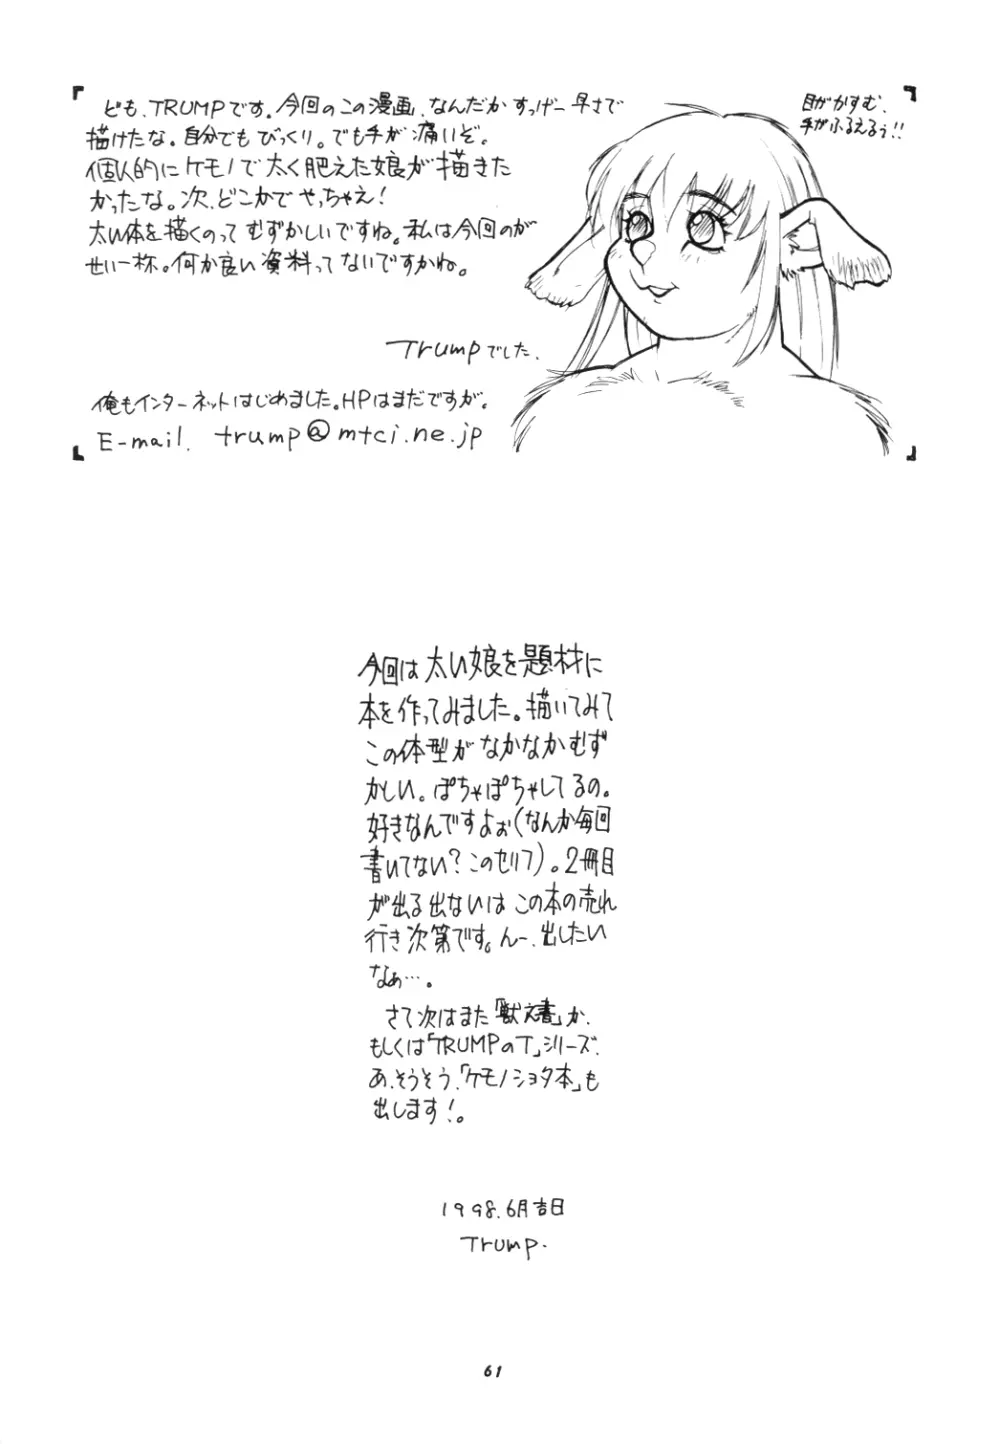 ども、TRUMPです。今回のこの漫画、なんだか すっげー早さで
描けたな。自分でも びっくり。でも手が痛いぞ。
個人的に ケモノで 太く肥えた娘が 描きた
かったな。次、どこかで やっちゃえ!
太い体を描くのって むずかしいですね。私は今回のが
せい一杯。何か良い資料って ないですかね。
Trumpでした.
俺もインターネットはじめました。HPはまだですが。
E-mail. trump@mtci.ne.jp
目がかすむ、
手がふるえるぅ!!
今回は 太い娘を題材に
本を作ってみました。描いてみて
この体型が なかなかむず
かしい。ぽちゃぽちゃしてるの。
好きなんですよぉ(なんか毎回
書いてない?このセリフ)。2冊目
が出る出ないは この本の売れ
行き次第です。んー、出したい
なぁ…。
さて次はまた「獣之書」か、
もしくは「TRUMPのT」シリーズ、
あ、そうそう、「ケモノショタ本」も
出します!。
1998.6月吉日
Trump.
61